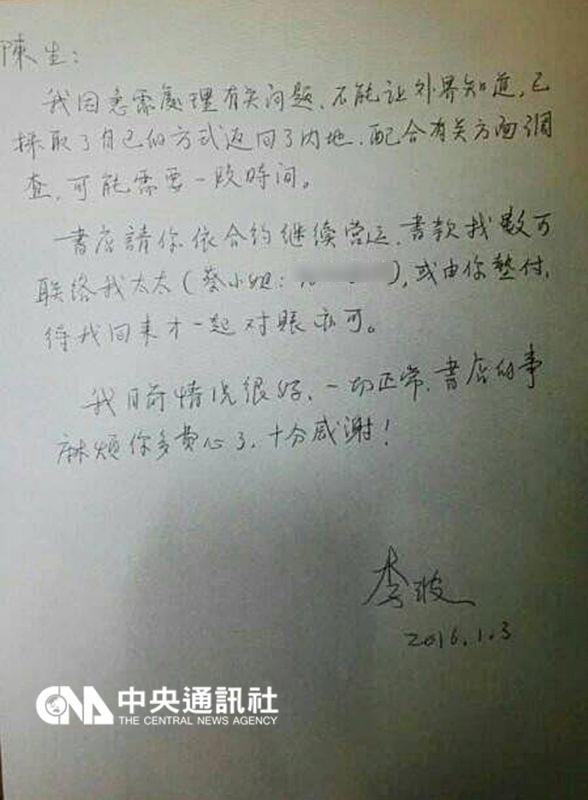 陳生：
我因急需處理有关问题，不能让外界知道，已
採取了自己的方式返回了内地，配合有关方面調
查，可能需要一段時间。
書店請你依合约继续营运，書款找數可
联络我太太（蔡小姐：），或由你墊付，
待我回来才一起对賬亦可。
我目前情况很好，一切正常，書店的事
麻烦你多费心了，十分感謝！
李波
2016.1.3
CNA 中央通訊社
THE CENTRAL NEWS AGENCY